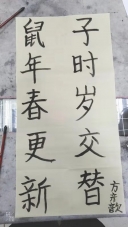 子时岁交替
鼠年春更新
方彦歆